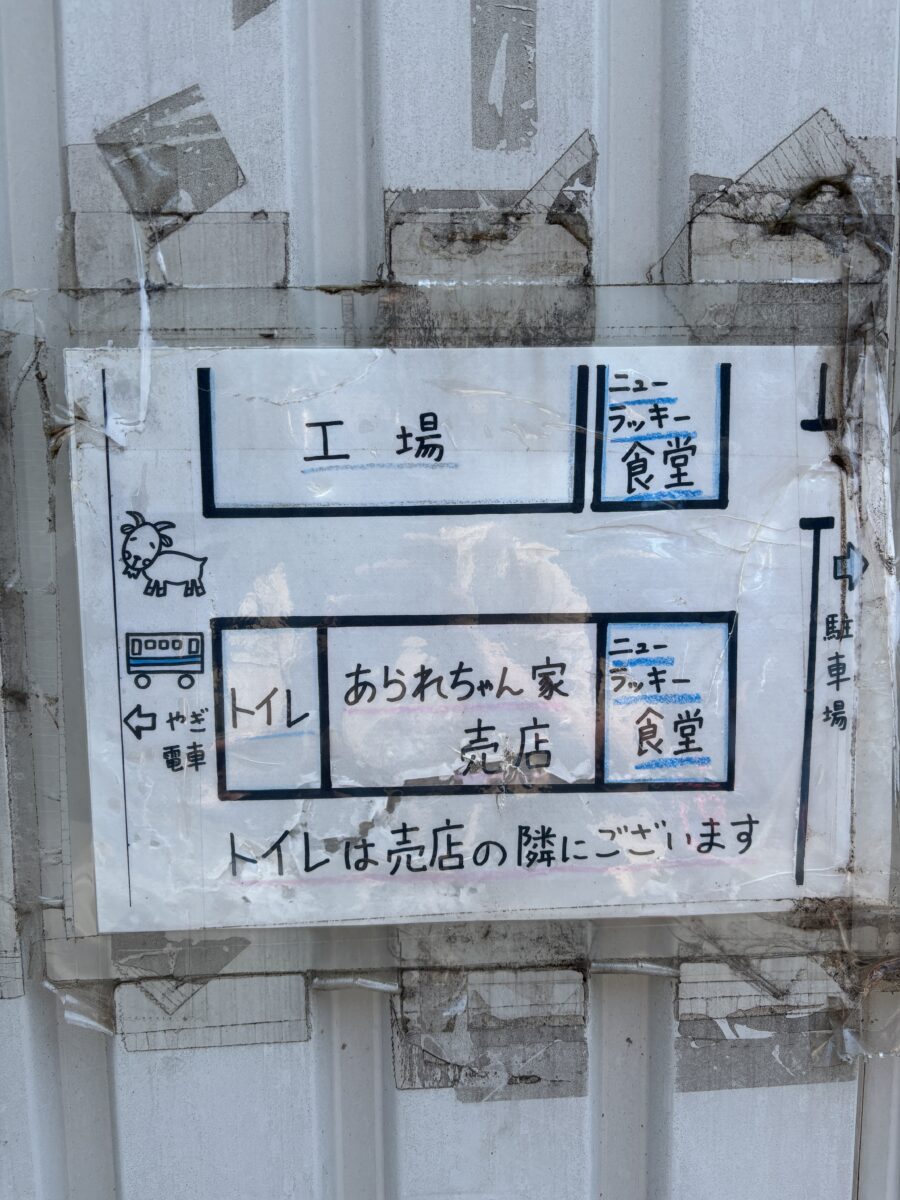 工場
ニュー
ラッキー
食堂
トイレ
あられちゃん家
売店
ニュー
ラッキー
食堂
やぎ
電車
駐車場
トイレは売店の隣にございます